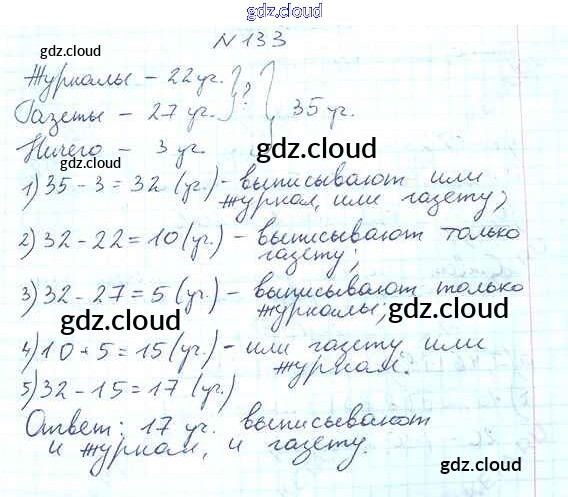 gdz.cloud
gdz.cloud
gdz.cloud
N 133
Журналы – 22 уч.
Газеты – 27 уч. ? 35 уч.
Ничего – 3 уч.
gdz.cloud
1) 35 - 3 = 32 (уч.) - выписывают или
журнал, или газету;
2) 32 - 22 = 10 (уч.) - выписывают только
газету;
3) 32 - 27 = 5 (уч.) - выписывают только
журналы;
gdz.cloud
gdz.cloud
4) 10 + 5 = 15 (уч.) - или газету или
журнал.
5) 32 - 15 = 17 (уч.)
Ответ: 17 уч. выписывают
и журнал, и газету.
gdz.cloud